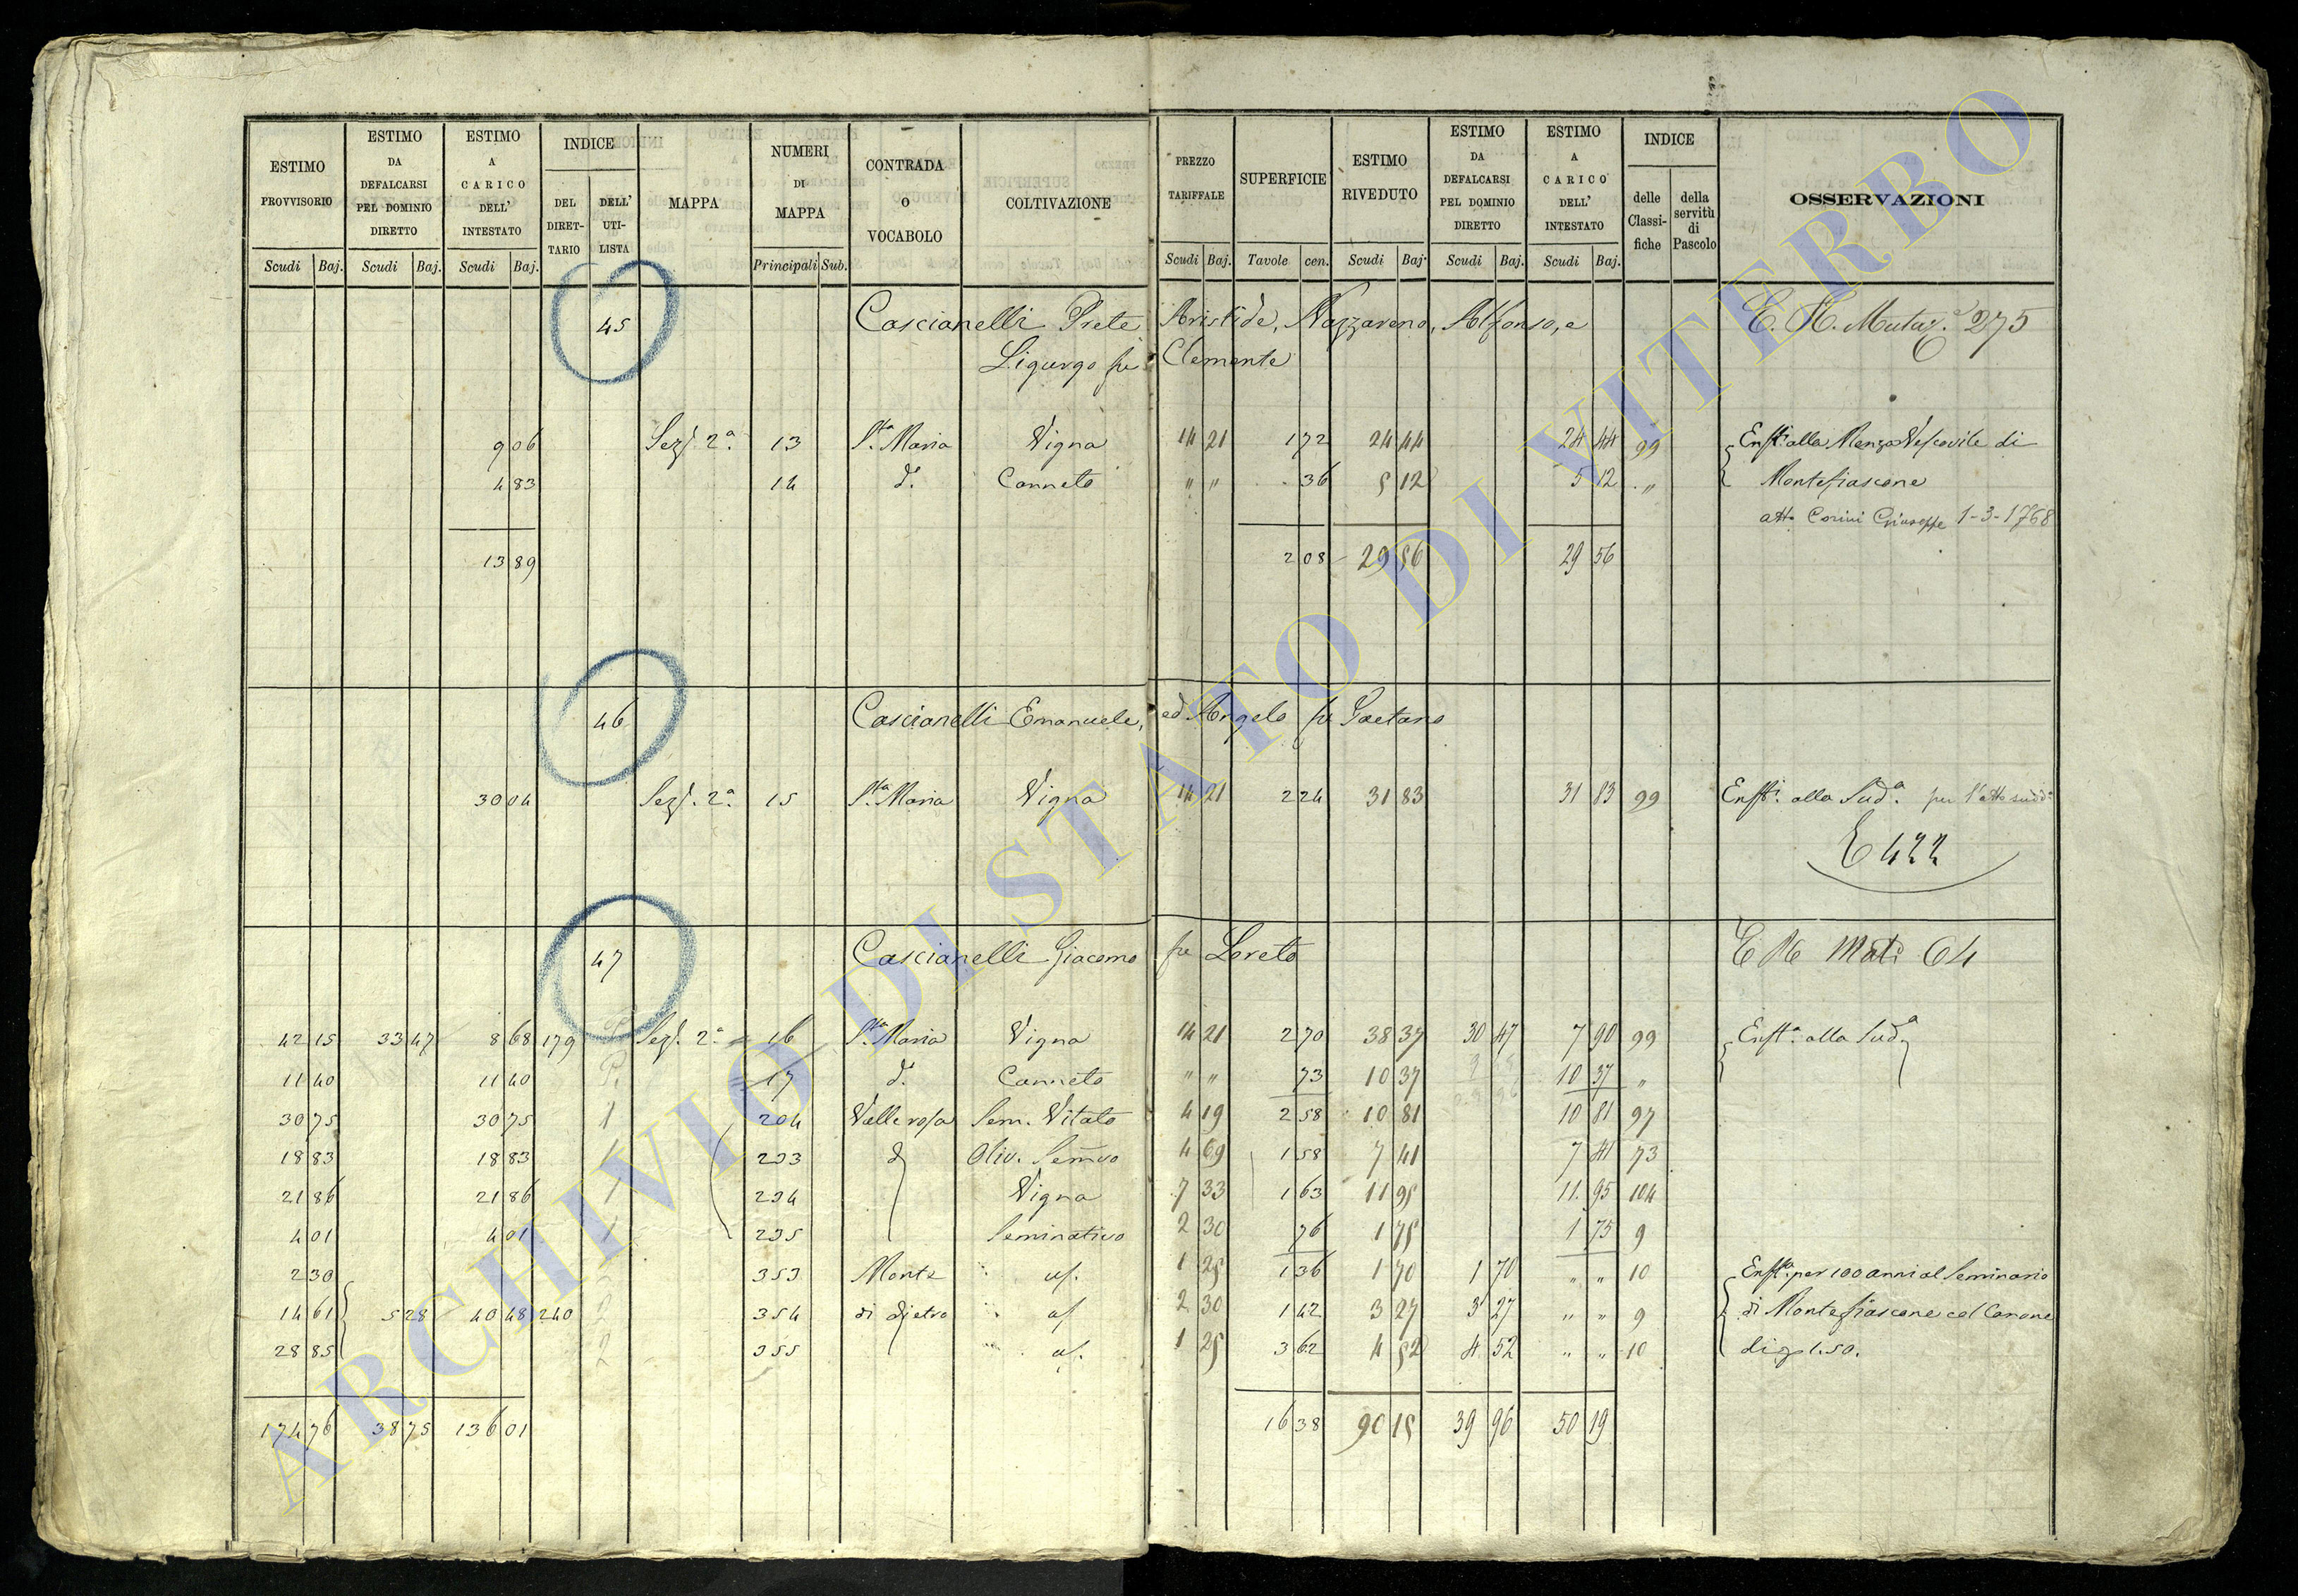 ESTIMO PROVVISORIO | ESTIMO DA DEFALCARSI PEL DOMINIO DIRETTO | ESTIMO A CARICO DELL' INTESTATO | INDICE | MAPPA | NUMERI DI MAPPA | CONTRADA O VOCABOLO | COLTIVAZIONE | PREZZO TARIFFALE | SUPERFICIE | ESTIMO RIVEDUTO | ESTIMO DA DEFALCARSI PEL DOMINIO DIRETTO | ESTIMO A CARICO DELL' INTESTATO | INDICE | OSSERVAZIONI
DEL DIRET-TARIO | DELL' UTI-LISTA | delle Classi-fiche | della servitù di Pascolo
Scudi | Baj. | Scudi | Baj. | Scudi | Baj. | Principali | Sub. | Scudi | Baj. | Tavole | cen. | Scudi | Baj. | Scudi | Baj. | Scudi | Baj.
45 Cascianelli Prete Aristide, Nazzareno, Alfonso, e E. R. Mutaz. 275
Ligurgo fu Clemente
9 06 Sez. 2a. 13 S.ta Maria Vigna 14 21 1 72 24 44 24 44 99 Enfti. alla Mensa Vescovile di
4 83 14 d.o Canneto " " 36 5 12 5 12 " Montefiascone
atto Corini Giuseppe 1-3-1768
13 89 2 08 29 56 29 56
46 Cascianelli Emanuele, ed Angelo fu Gaetano
30 04 Sez. 2a. 15 S.ta Maria Vigna 14 21 2 24 31 83 31 83 99 Enfti. alla Sud.a per l'atto sudd.o
E 422
47 Cascianelli Giacomo fu Loreto E R Mut. 64
42 15 33 47 8 68 179 Sez. 2a 16 S.ta Maria Vigna 14 21 2 70 38 37 30 47 7 90 99 Enft.a alla Sud.a
11 40 11 40 P. 17 d.o Canneto " " 73 10 37 10 37 "
30 75 30 75 1 204 Valle rosa Sem. Vitato 4 19 2 58 10 81 10 81 97
18 83 18 83 1 233 d Oliv. Semivo 4 69 1 58 7 41 7 41 73
21 86 21 86 1 234 Vigna 7 33 1 63 11 95 11 95 104
4 01 4 01 1 235 Seminativo 2 30 76 1 75 1 75 9
2 30 353 Monte " 1 25 1 36 1 70 1 70 " " 10 Enft.a per 100 anni al Seminario
14 61 5 28 40 48 240 2 354 di dietro " 2 30 1 42 3 27 3 27 " " 9 di Montefiascone col Canone
28 85 2 355 " 1 25 3 62 4 52 4 52 " " 10 di 1.50.
174 76 38 75 136 01 16 38 90 15 39 96 50 19
ARCHIVIO DI STATO DI VITERBO